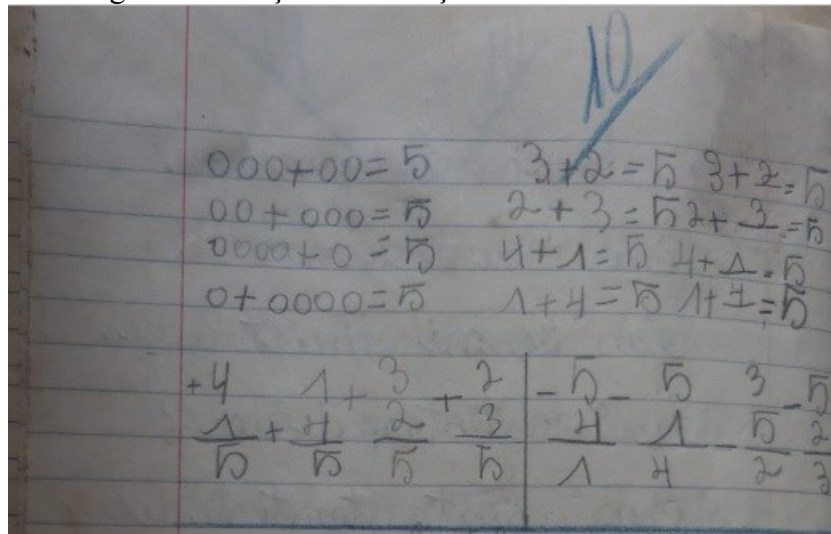 10
000+00=5 3+2=5 3+2=5
00+000=5 2+3=5 2+3=5
0000+0=5 4+1=5 4+1=5
0+0000=5 1+4=5 1+4=5
+4 1+ 3 +2 -5- 5 3 -5
1 + 4 2 3 4 1 - 5 2
5 5 5 5 1 4 2 3